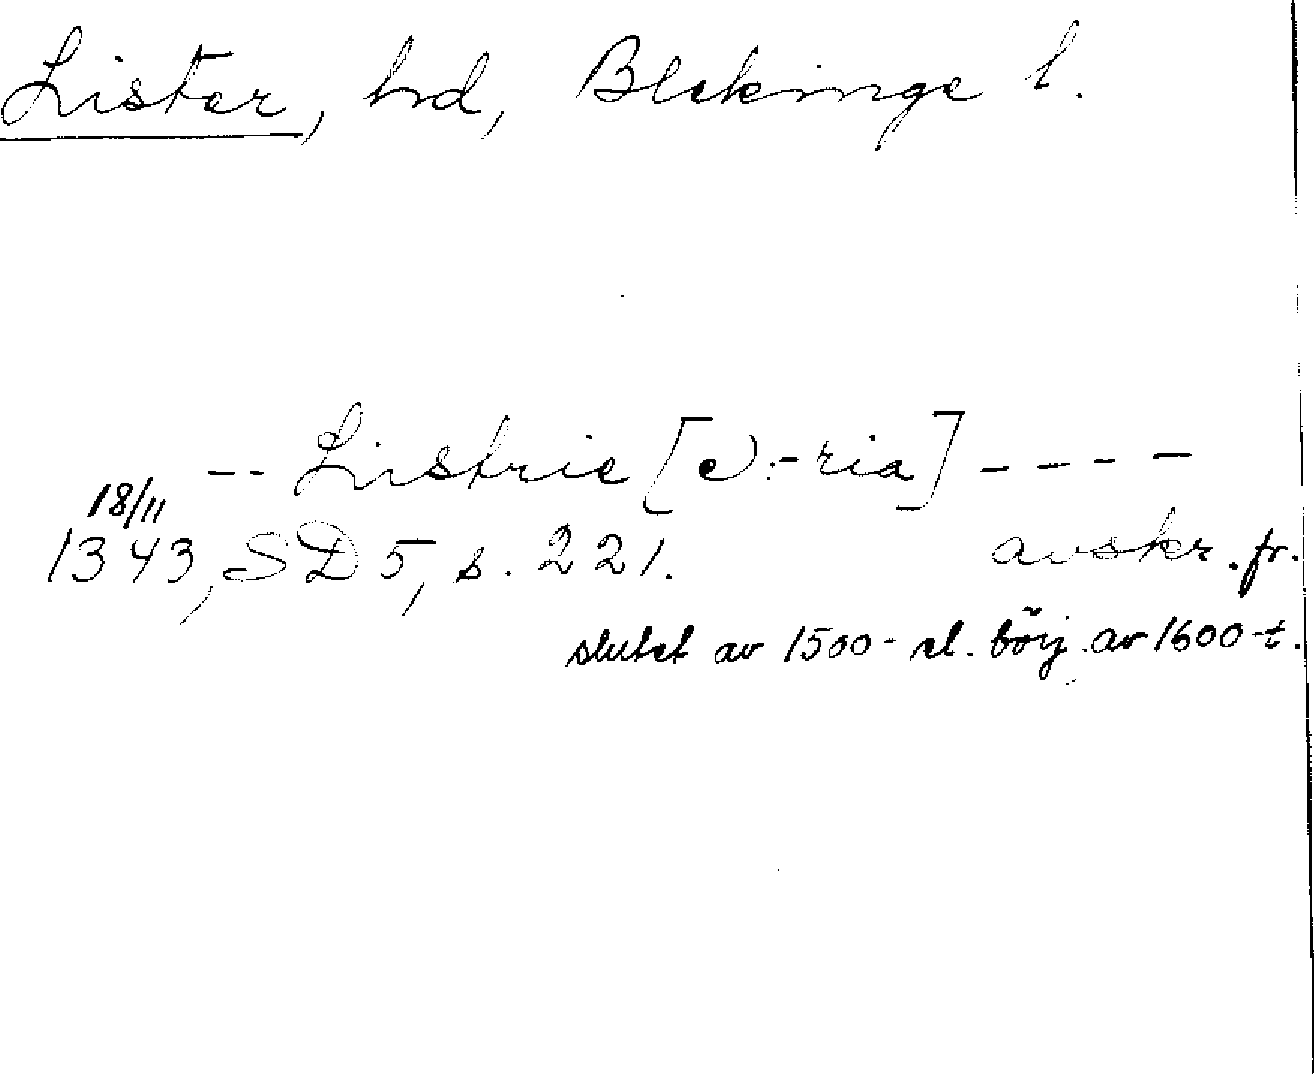 Lister, hrd, Blekinge l.
-- Listrie [e): -ria] ----
18/11
1343, SD 5, s. 221. avskr. fr.
slutet av 1500- el. börj. av 1600-t.